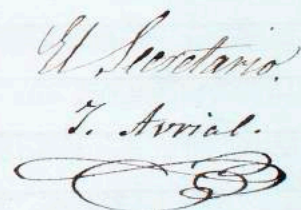 El Secretario.
J. Avrial.